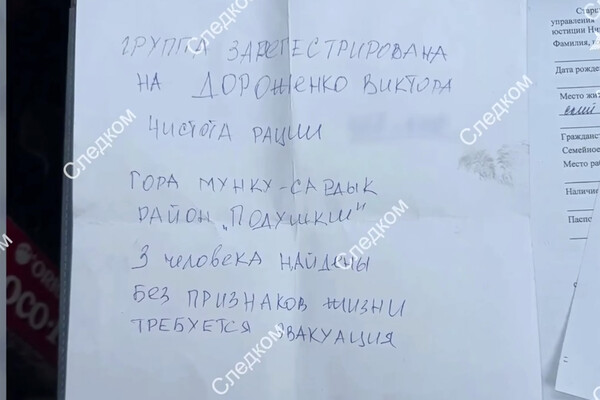 ГРУППА ЗАРЕГЕСТРИРОВАНА
НА ДОРОЖЕНКО ВИКТОРА
ЧИСТОТА РАЦИИ
ГОРА МУНКУ-САРДЫК
РАЙОН „ПОДУШКИ"
3 человека НАЙДЕНЫ
БЕЗ ПРИЗНАКОВ ЖИЗНИ
ТРЕБУЕТСЯ ЭВАКУАЦИЯ
Следком
Следком
Следком
Следком
Следком
Следком
Следком
управления
юстиции
Фамилия,
Дата рожде
Место жи
Гражданст
Семейное
Место раб
Наличие
Паспо